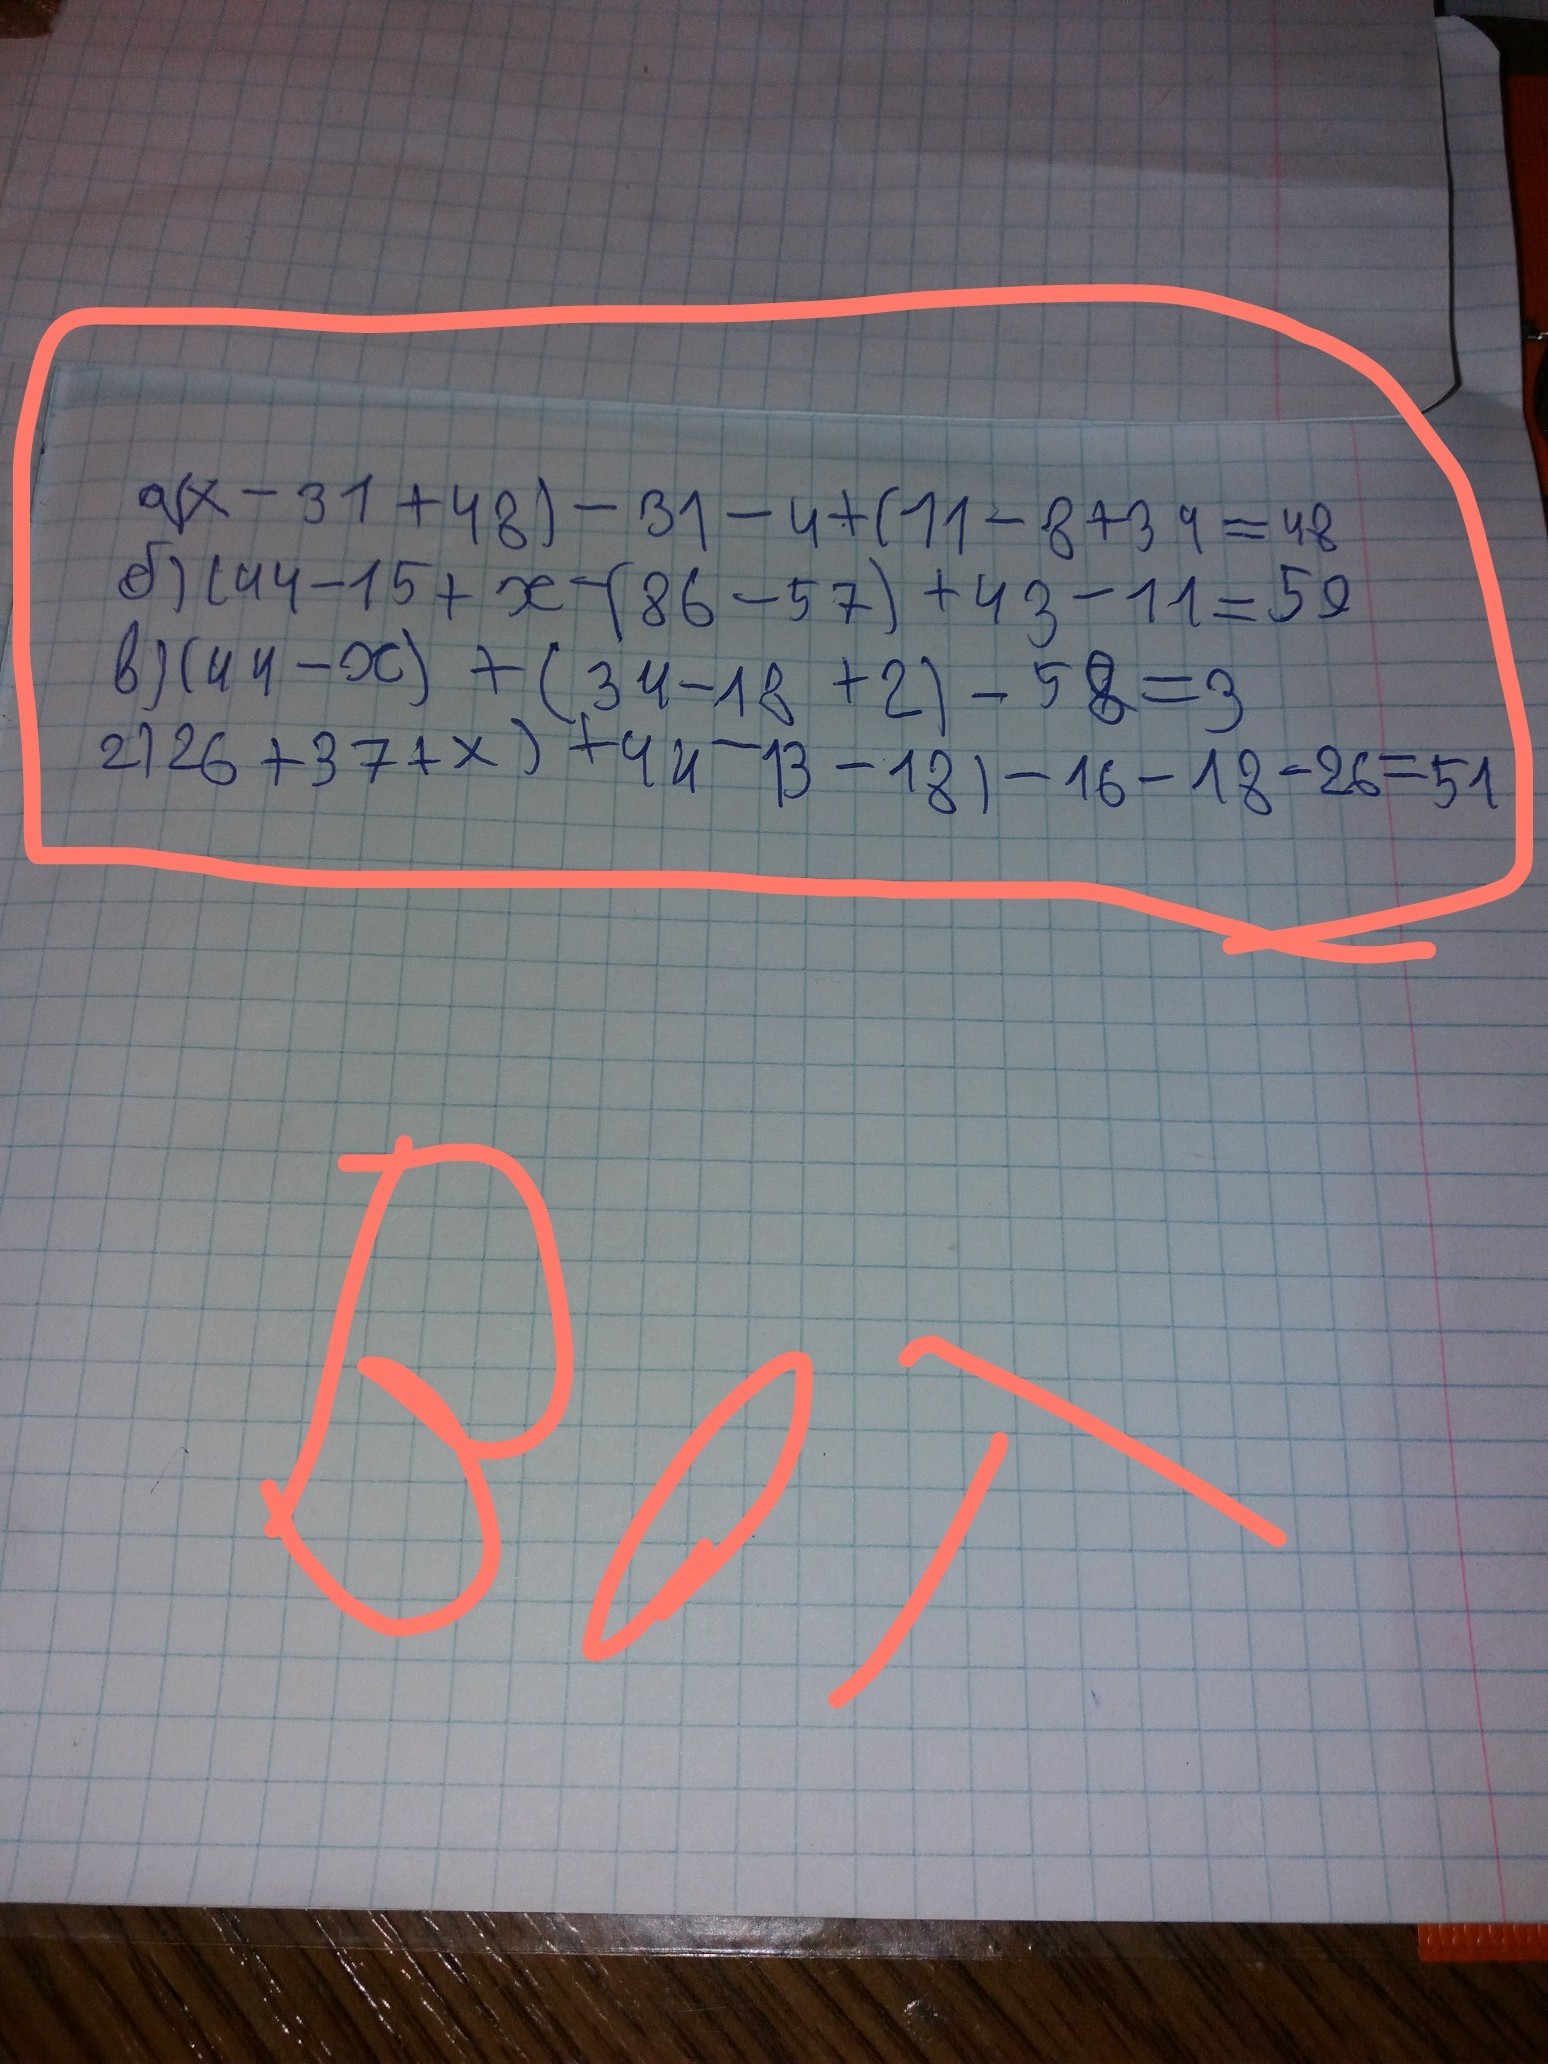 а)(х - 31 + 48) - 31 - 4 + (11 - 8 + 34 = 48
б) (44 - 15 + х - (86 - 57) + 43 - 11 = 59
в) (44 - х) + (34 - 18 + 2) - 58 = 3
г) 26 + 37 + х) + 44 - 13 - 18) - 16 - 18 - 26 = 51
Вот